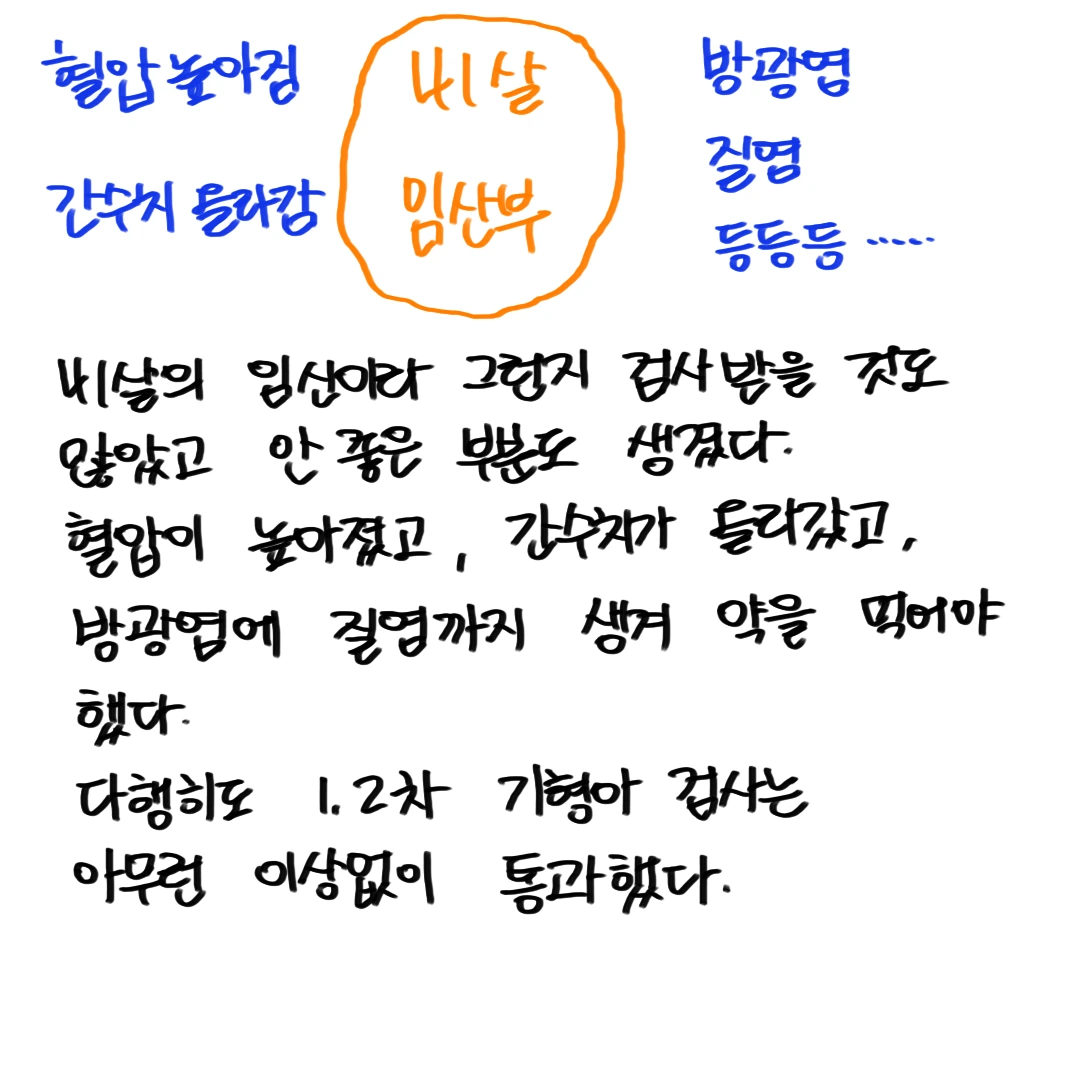 혈압 높아짐
간수치 올라감
41살
임산부
방광염
질염
등등등 ......
41살의 임신이라 그런지 검사받을 것도
많았고 안 좋은 부분도 생겼다.
혈압이 높아졌고, 간수치가 올라갔고,
방광염에 질염까지 생겨 약을 먹어야
했다.
다행히도 1.2차 기형아 검사는
아무런 이상없이 통과했다.